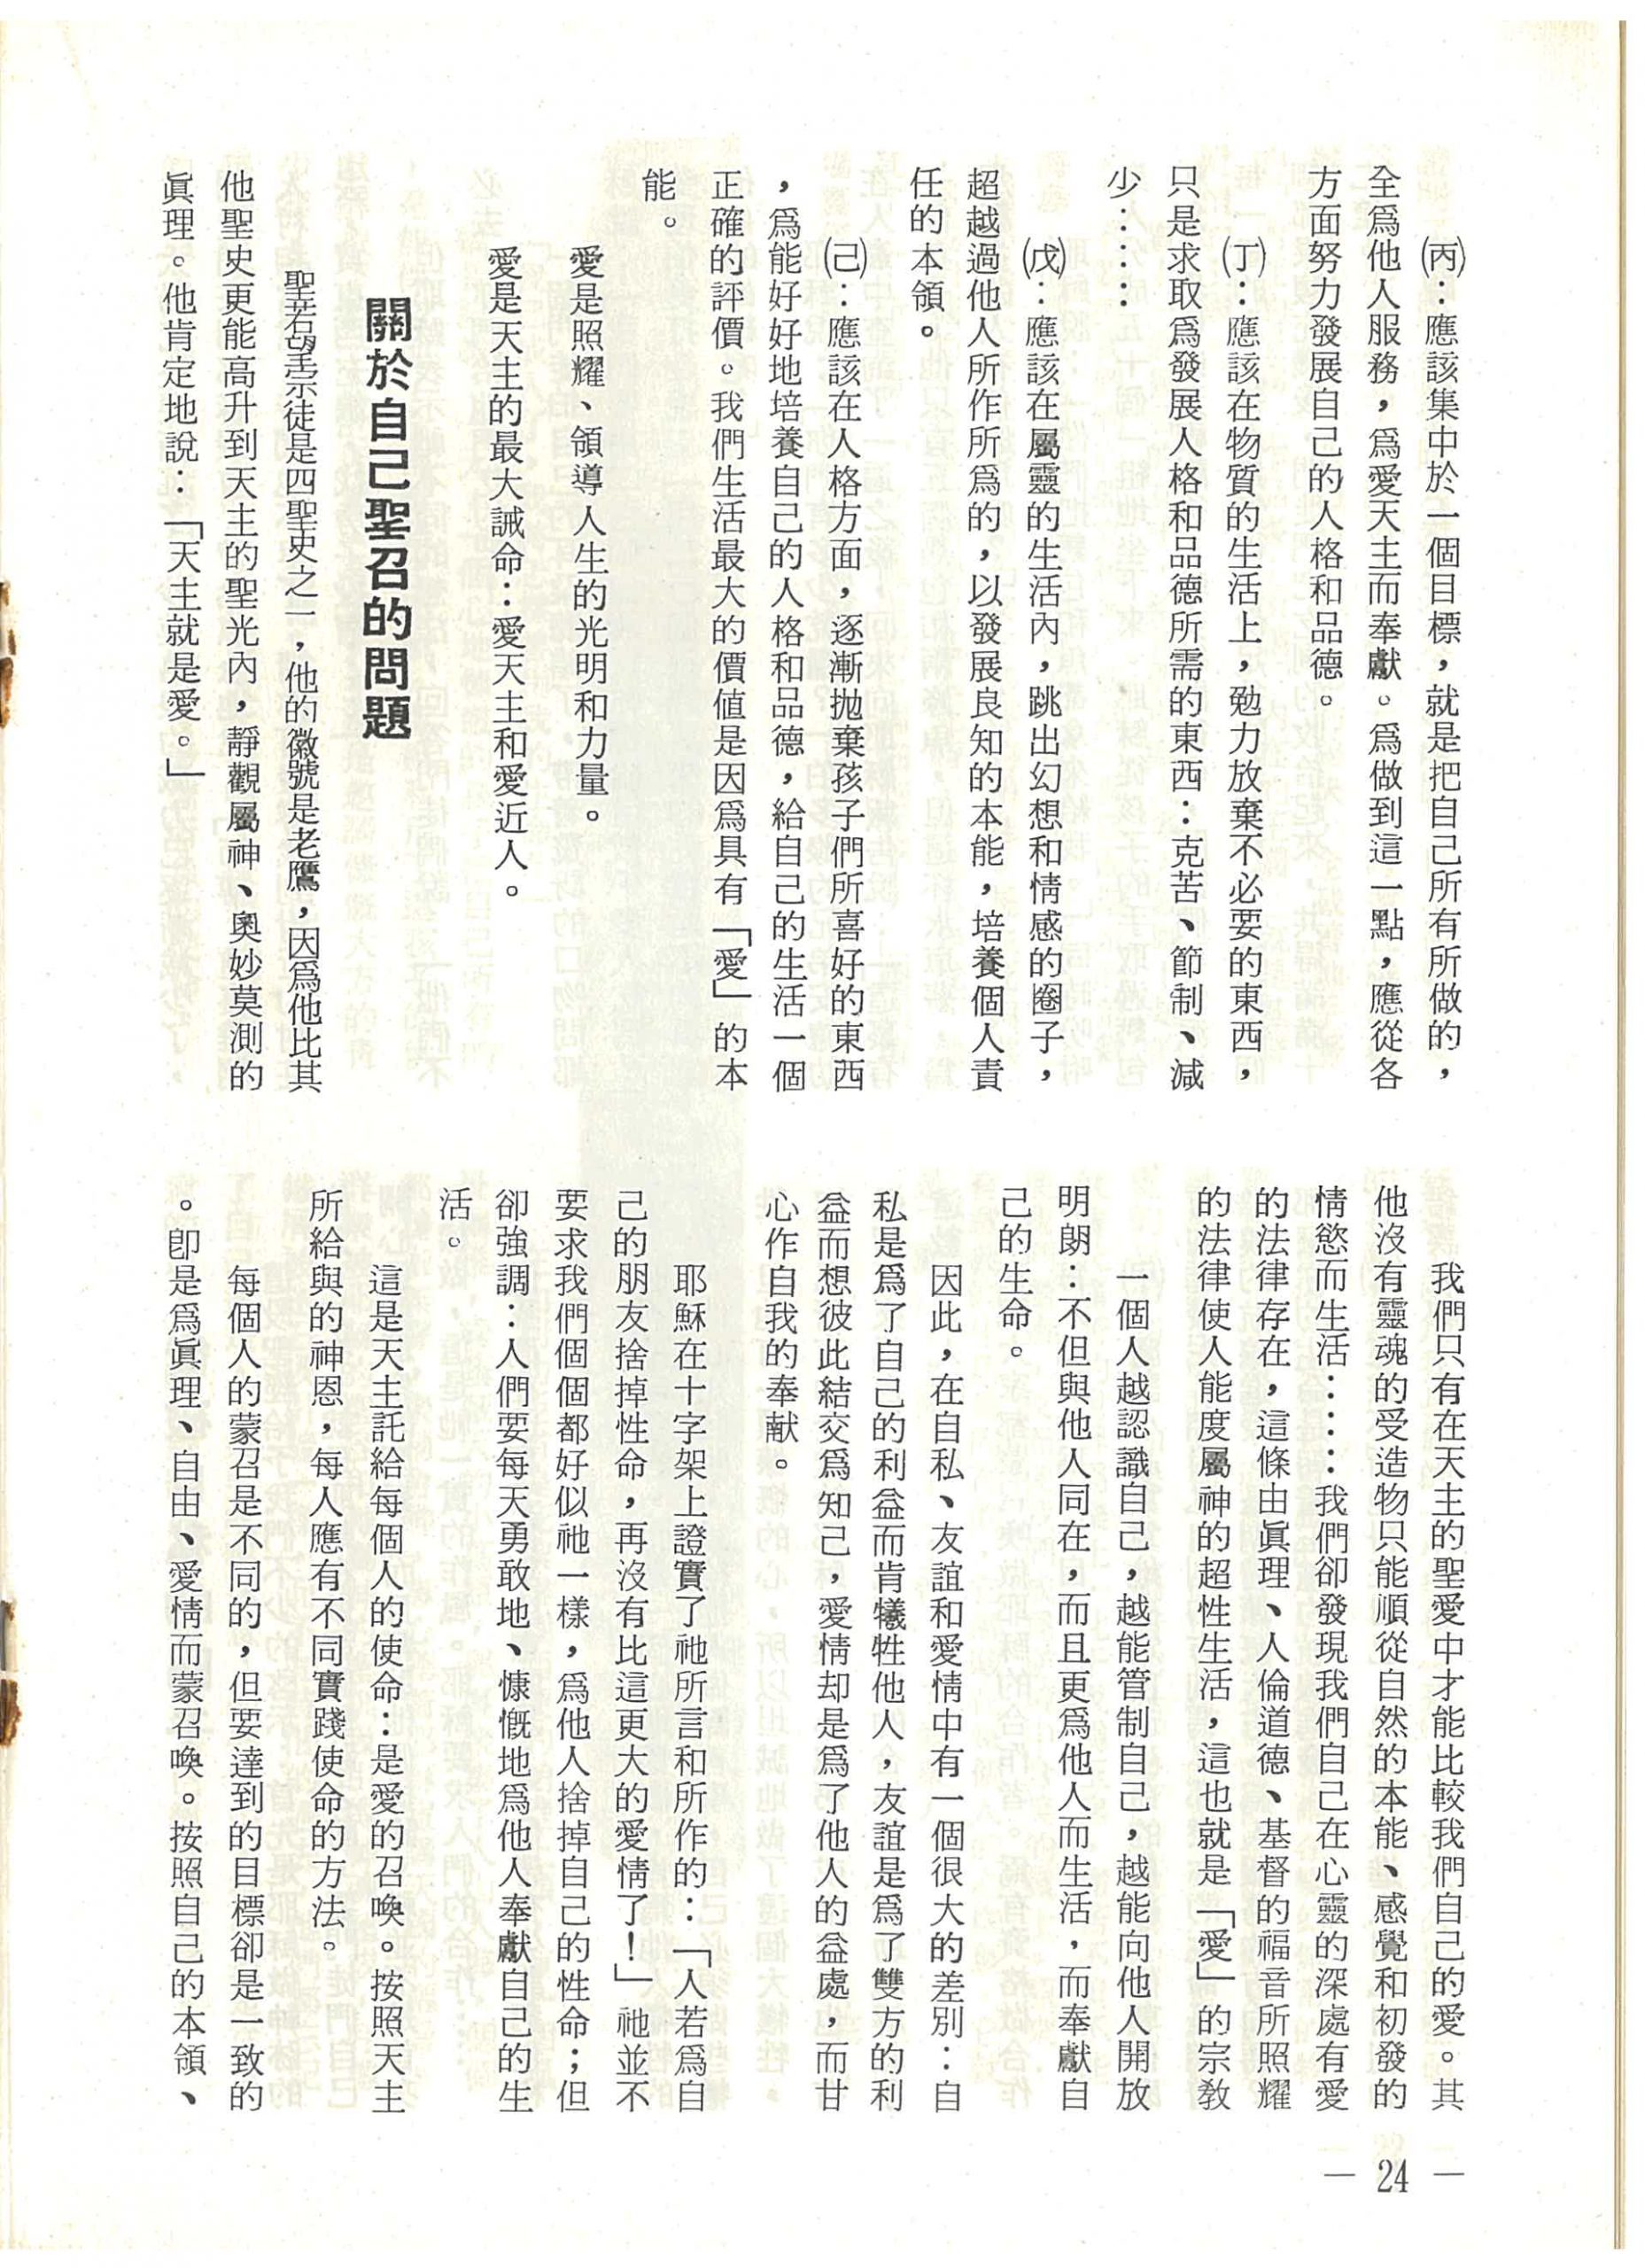 ㈥：應該集中於一個目標，就是把自己所有所做的，
全爲他人服務，爲愛天主而奉獻。爲做到這一點，應從各
方面努力發展自己的人格和品德。
㈣：應該在物質的生活上，勉力放棄不必要的東西，
只是求取爲發展人格和品德所需的東西：克苦、節制、減
少……
(戊)：應該在屬靈的生活內，跳出幻想和情感的圈子，
超越過他人所作所爲的，以發展良知的本能，培養個人責
任的本領。
(己)：應該在人格方面，逐漸拋棄孩子們所喜好的東西
，爲能好好地培養自己的人格和品德，給自己的生活一個
正確的評價。我們生活最大的價值是因爲具有「愛」的本
能。
愛是照耀、領導人生的光明和力量。
愛是天主的最大誡命：愛天主和愛近人。
關於自己聖召的問題
聖若望宗徒是四聖史之一，他的徽號是老鷹，因爲他比其
他聖史更能高升到天主的聖光內，靜觀屬神、奧妙莫測的
眞理。他肯定地說：「天主就是愛。」
我們只有在天主的聖愛中才能比較我們自己的愛。其
他沒有靈魂的受造物只能順從自然的本能、感覺和初發的
情慾而生活……我們卻發現我們自己在心靈的深處有愛
的法律存在，這條由眞理、人倫道德、基督的福音所照耀
的法律使人能度屬神的超性生活，這也就是「愛」的宗敎
一個人越認識自己，越能管制自己，越能向他人開放
明朗：不但與他人同在，而且更爲他人而生活，而奉獻自
己的生命。
因此，在自私、友誼和愛情中有一個很大的差別：自
私是爲了自己的利益而肯犧牲他人，友誼是爲了雙方的利
益而想彼此結交爲知己，愛情却是爲了他人的益處，而甘
心作自我的奉献。
耶穌在十字架上證實了祂所言和所作的：「人若爲自
己的朋友捨掉性命，再沒有比這更大的愛情了！」祂並不
要求我們個個都好似祂一樣，爲他人捨掉自己的性命；但
卻強調：人們要每天勇敢地、慷慨地爲他人奉獻自己的生
活。
這是天主託給每個人的使命：是愛的召喚。按照天主
所給與的神恩，每人應有不同實踐使命的方法。
每個人的蒙召是不同的，但要達到的目標卻是一致的
。卽是爲眞理、自由、愛情而蒙召喚。按照自己的本領、
— 24 —